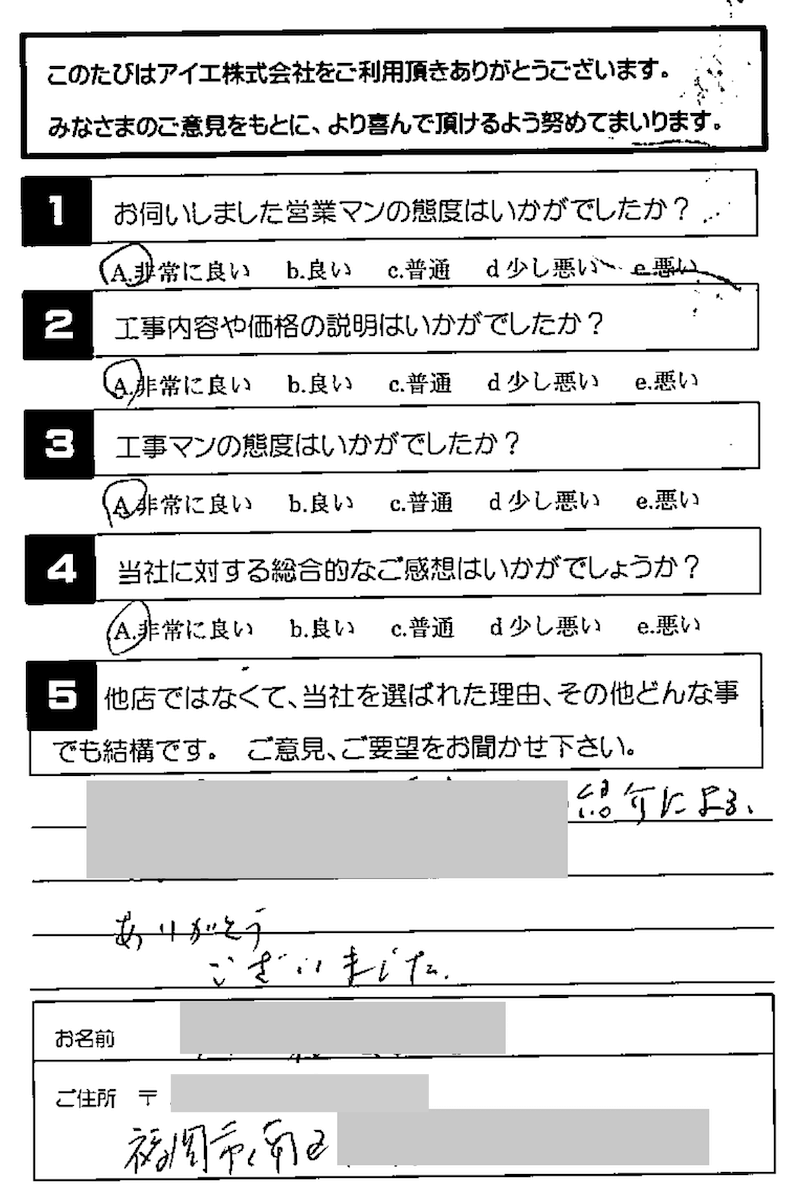 このたびはアイエ株式会社をご利用頂きありがとうございます。
みなさまのご意見をもとに、より喜んで頂けるよう努めてまいります。
1 お伺いしました営業マンの態度はいかがでしたか？
A.非常に良い b.良い c.普通 d少し悪い e.悪い
2 工事内容や価格の説明はいかがでしたか？
A.非常に良い b.良い c.普通 d少し悪い e.悪い
3 工事マンの態度はいかがでしたか？
A.非常に良い b.良い c.普通 d少し悪い e.悪い
4 当社に対する総合的なご感想はいかがでしょうか？
A.非常に良い b.良い c.普通 d少し悪い e.悪い
5 他店ではなくて、当社を選ばれた理由、その他どんな事
でも結構です。 ご意見、ご要望をお聞かせ下さい。
紹介による、
ありがとう
ございました.
お名前
ご住所 〒
福岡市南区